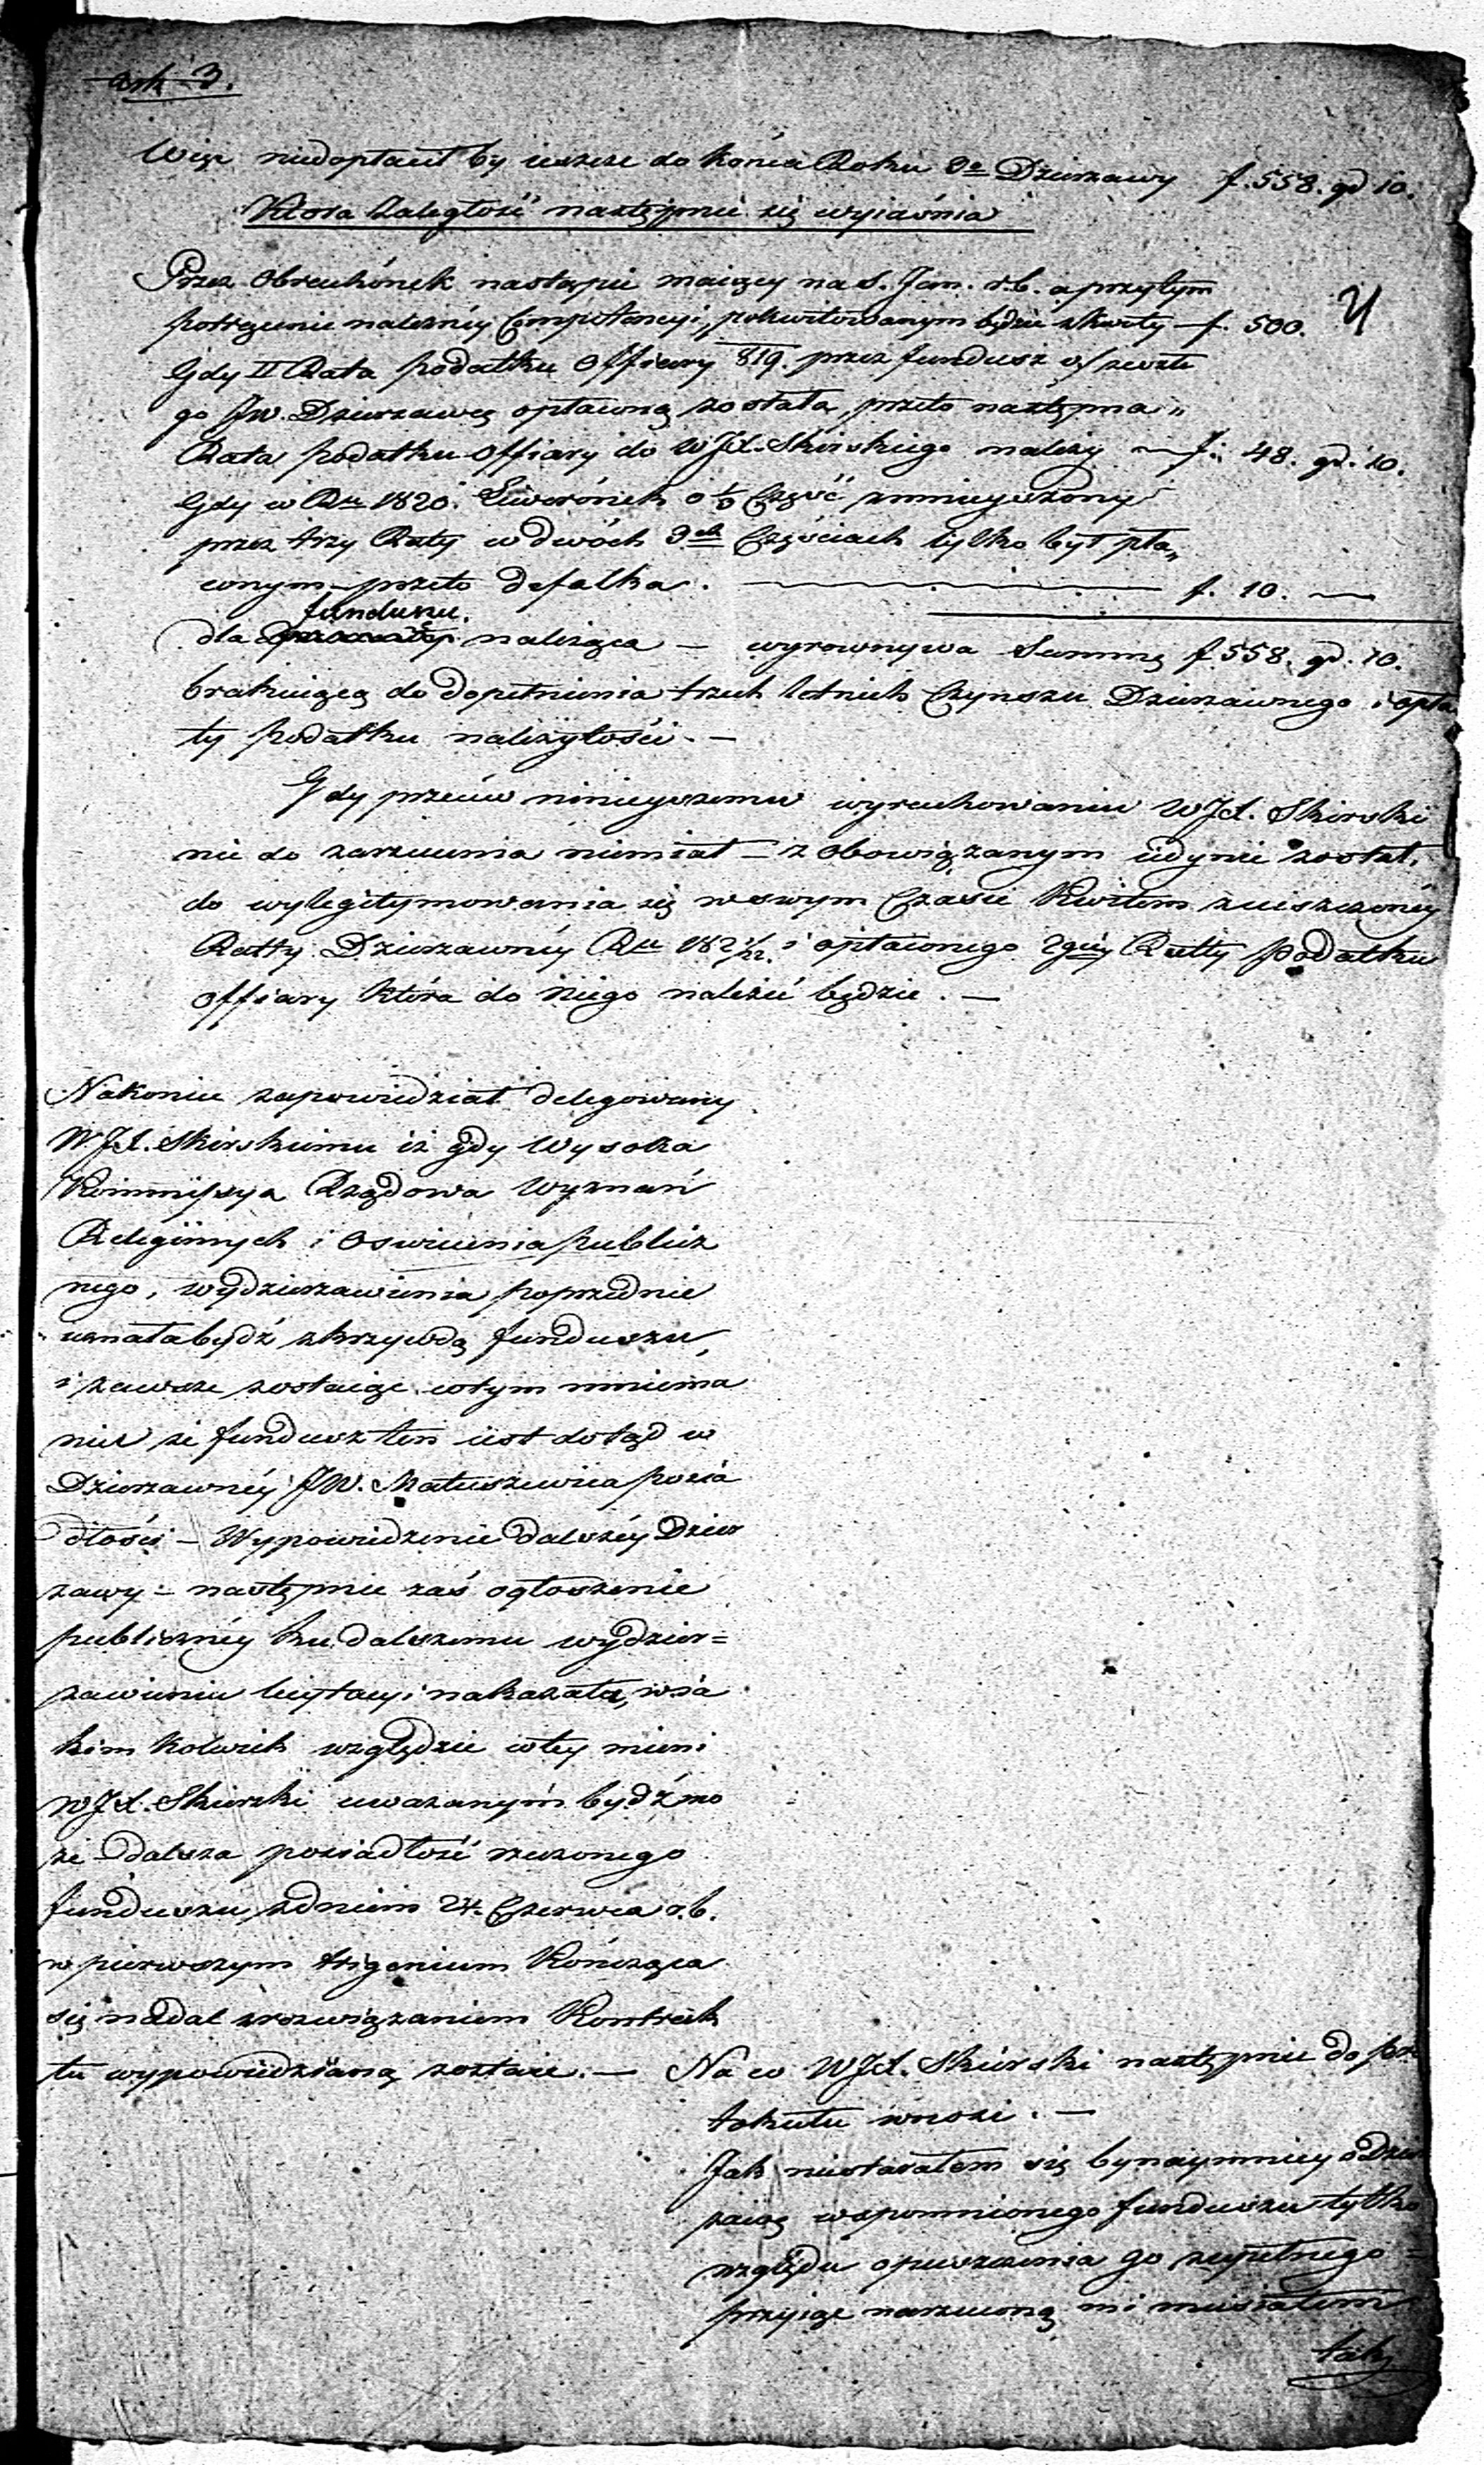 ark 3.
Więc niedopłacił by ieszcze do końca Roku 3o Dzierzawy f. 558. gr 10.
Która Zaległość następnie się wyiaśnia
Przez Obrachónek nastąpić maiący na S. Jan. r.b. a przytym
potrącenie należnéy Competencyi, pokwitowanym będzie z kwoty f. 500.
Gdy II Rata podatku Offiary 819. przez fundusz
go JW. Dzierzawcę opłaconą została, przeto następna
Rata podatku Offiary do WJX. Skirskiego należy f. 48. gr. 10.
Gdy w Ru 1820. Liwerónek o 1/3 Część zmnieyszony
przez trzy Raty w dwóch 3ch Częściach tylko był pła„
conym przeto Defalka. f. 10. —
funduszu.
dla należąca — wyrownywa Summę f 558. gr. 10.
brakuiącą do dopełnienia trzech letnich Czynszu Dzierzawnego i opła
ty podatku należytości. —
Gdy przeciw ninieyszemu wyrachowaniu WJX. Skirski
nic do zarzucenia niemiał — zobowiązanym iedynie został,
do wylegitymowania się w swym Czasie Kwitem ziszczonéy
Ratty Dzierzawnéy Ru 1821/22. i opłaconego 2giéy Ratty podatku
Offiary która do niego należeć będzie. —
Nakoniec zapowiedział delegowany
WJX. Skirskiemu iż gdy Wysoka
Kommissya Rządowa Wyznań
Religiinych i Oswiecenia publicz
nego, wydzierzawienia poprzednie
uznała bydź z krzywdą funduszu,
i zawsze zostaiąc w tym mniema
niu że fundusz ten iest dotąd w
Dzierzawnéy JW. Matuszewica posia
dłości — Wypowiedzenie dalszéy Dzier
zawy — następnie zaś ogłoszenie
publicznéy ku dalszemu wydzier=
zawieniu licytacyi nakazała, w ia
kim kolwiek względzie w tey mierze
WJX. Skirski uważanym bydź mo
że dalsza posiadłość rzeczonego
funduszu z dniem 24. Czerwca r.b.
w pierwszym trigenium Kończąca
się nadal z rozwiązaniem Kontrak
tu wypowiedzianą zostaie. — Na co WJX. Skirski następnie do pro
tokułu wnosi. —
Jak niestarałem się bynaymniey o Dzier
zawę wspomnionego funduszu tylko
względu opuszczenia go zupełnego
przyiąć narzuconą mi musiałem
tak